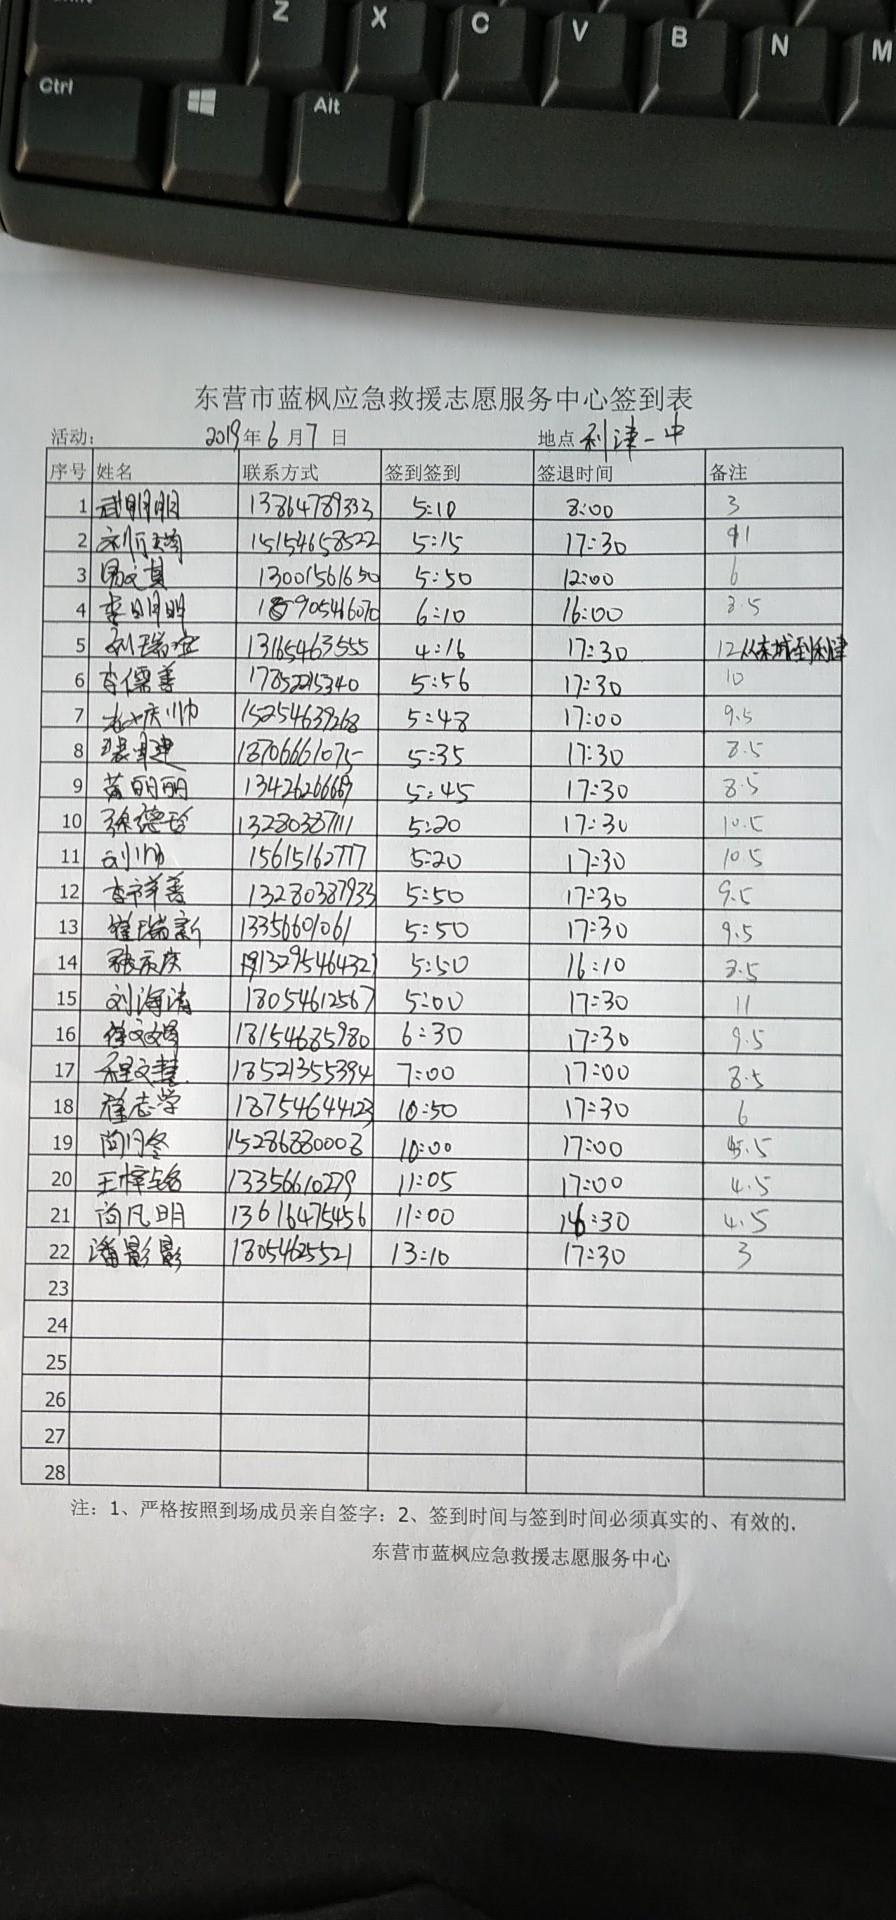 Z X C V B N M
Ctrl Alt
东营市蓝枫应急救援志愿服务中心签到表
活动: 2019年6月7日 地点 利津一中
序号 姓名 联系方式 签到签到 签退时间 备注
1 武明明 13864789333 5:10 8:00 3
2 15154658522 5:15 17:30 11
3 13001561650 5:50 12:00 6
4 李明明 6:10 16:00 8.5
5 刘瑞 13165463555 4:16 17:30 12 从东城到利津
6 李儒善 17852215340 5:56 17:30 10
7 赵庆帅 15254639268 5:48 17:00 9.5
8 18706661075 5:35 17:30 8.5
9 黄丽丽 13426266669 5:45 17:30 8.5
10 徐德 13280387111 5:20 17:30 10.5
11 刘帅 15615162777 5:20 17:30 10.5
12 李祥善 13280387933 5:50 17:30 9.5
13 崔瑞新 13356601061 5:50 17:30 9.5
14 张庆庆 13295464321 5:50 16:10 8.5
15 刘海涛 18054612567 5:00 17:30 11
16 18154685980 6:30 17:30 9.5
17 程文慧 18521355394 7:00 17:00 8.5
18 崔志学 18754644123 10:50 17:30 6
19 尚丹冬 15286880008 10:00 17:00 5.5
20 王梓铭 13356610279 11:05 17:00 4.5
21 尚凡明 13616475456 11:00 16:30 4.5
22 潘影影 18054625521 13:10 17:30 3
23
24
25
26
27
28
注：1、严格按照到场成员亲自签字：2、签到时间与签到时间必须真实的、有效的.
东营市蓝枫应急救援志愿服务中心